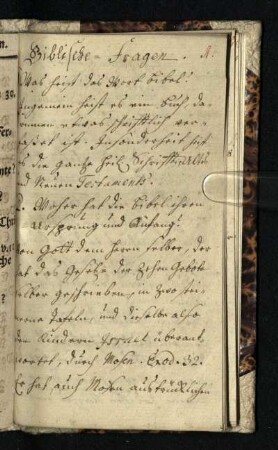 Biblische Fragen.
Was heist das Wort Bibel?
Ingemein heist es ein Buch, da-
rinnen etwas schriftlich ver-
faßet ist. Insonderheit heist
es die gantze Heil. Schrifft Altes
und Neuen Testaments.
2. Woher hat die Bibel ihren
Ursprung und Anfang?
Von Gott dem Herrn selber, der
hat das Gesetze der Zehen Gebote
selber geschrieben, in zwo stei-
nerne Tafeln, und dieselbe also
den Kindern Israel überant-
wortet, durch Mosen. Exod. 32.
Er hat auch Mosen ausdrücklichen